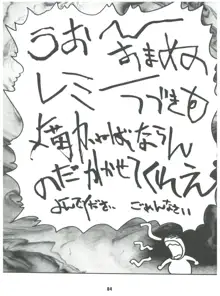 うお〜
おまめの
レミーつづきも
描かねばならん
のだ かかせてくんえ
よんでください ごめんなさい
84